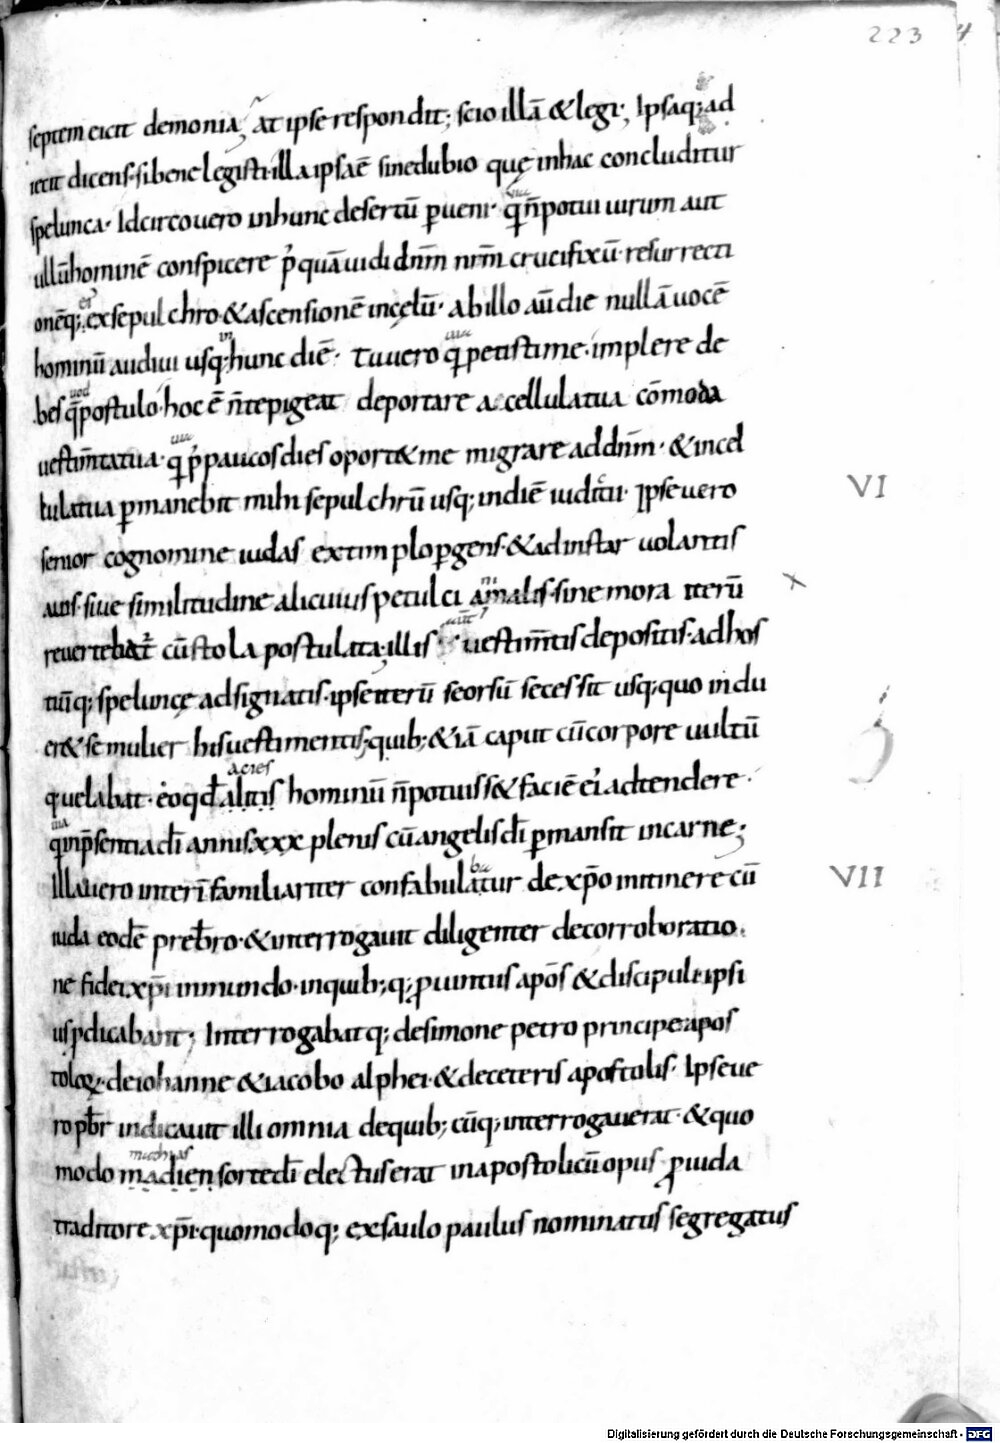 223
septem eicit demonia, at ipse respondit; scio illā & legi; Ipsaq; ad
iecit dicens· si bene legisti· illa ipsa ē sine dubio quę in hac concluditur
spelunca· Idcirco uero in hunc desertū ꝑueni· q̄ n̄ potui uirum aut
ullū hominē conspicere p̓ quā uidi dn̄m nr̄m crucifixū· resurrecti
onēq; ei' ex sepulchro· & ascensionē in cęlū· ab illo aū die nullā uocē
hominū audiui usq; in hunc diē· Tu uero q̄ petisti me· implere de
bes q̄ uod postulo· hoc ē n̄ te pigeat deportare a cellula tua cōmoda
uestim̄ta tua· q p̓ paucos dies oport& me migrare ad dn̄m· & in cel
lula tua ꝑmanebit mihi sepulchrū usq; in diē iudicii· Ipse uero
VI
senior cognomine iudas ex templo ꝑgens· & ad instar uolantis
auis· siue similitudine alicuius petulci animalis· sine mora iterū
reuertebat̄ cū stola postulata· illis uestim̄tis depositis· ad hos
tiūq; speluncę adsignatis· ipse iterū seorsū secessit usq; quo indu
er& se mulier his uestimentis; quib; & iā caput cū corpore uultū
que labat· eo qd̄ acies alitis hominū n̄ potuiss& faciē ei' adtendere·
q in p̄sentia dī annis· xxx plenis cū angelis dī ꝑmansit in carne;
Illa uero interī familiariter confabulabatur de xp̄o mitinere cū
VII
iuda eodē presb̄ro· & interrogauit diligenter de corroboratio
ne fidei xp̄i in mundo· in quib; q; ꝓuintiis apōs & discipuli ipsi
us p̄dicabant; Interrogabatq; de simone petro principe apos
tolorum· de iohanne & iacobo alphei· & de ceteris apostolis· Ipse ue
ro pb̄r indicauit illi omnia de quib; cūq; interrogauerat· & quo
modo mathias madien sorte dī electus erat in apostolicū opus ꝓ iuda
traditore xp̄i· quomodoq; ex saulo paulus nominatus segregatus
Digitalisierung gefördert durch die Deutsche Forschungsgemeinschaft - DFG